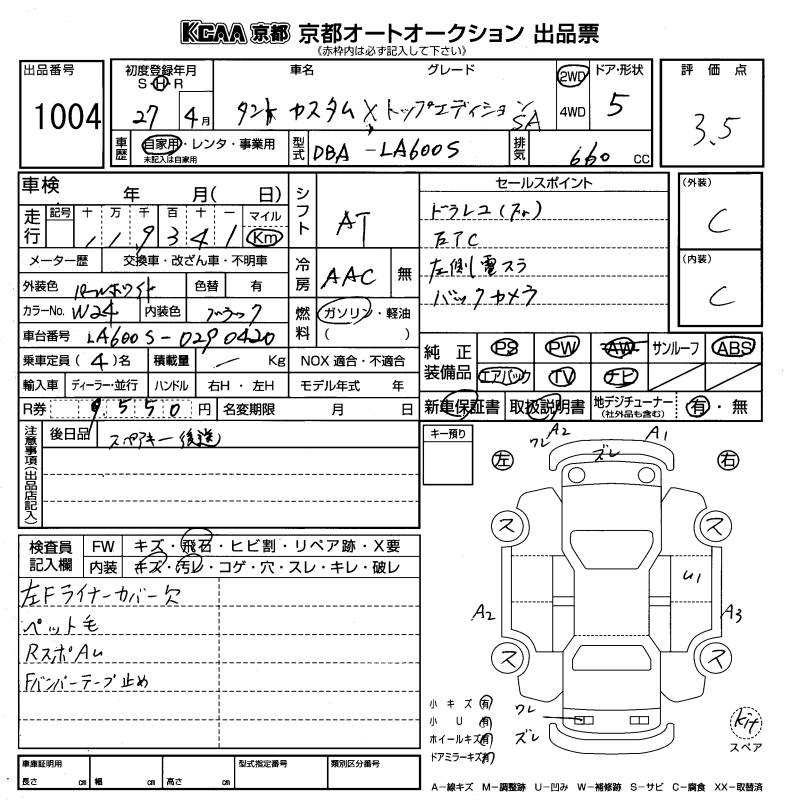 KCAA 京都 京都オートオークション 出品票
(赤枠内は必ず記入して下さい)
出品番号 1004
初度登録年月 S・H・R 27 4月
車名 グレード
タント カスタム X トップエディション SA
2WD 4WD
ドア・形状 5
評価点 3.5
車歴 自家用・レンタ・事業用
未記入は自家用
型式 DBA-LA600S
排気 660 CC
車検 年 月( 日)
シフト AT
セールスポイント
ドラレコ(フロ)
ETC
左側電スラ
バックカメラ
(外装) C
(内装) C
走行 記号 十 万 千 百 十 一 マイル Km
119341
メーター歴 交換車・改ざん車・不明車
冷房 AAC 無
外装色 パールホワイト 色替 有
カラーNo. W24 内装色 ブラック
燃料 ガソリン・軽油
( )
車台番号 LA600S-0290420
乗車定員(4)名 積載量 ー Kg NOX 適合・不適合
輸入車 ディーラー・並行 ハンドル 右H・左H モデル年式 年
R券 9550円 名変期限 月 日
純正装備品 PS PW AW サンルーフ ABS
エアバック TV ナビ
新車保証書 取扱説明書 地デジチューナー(社外品も含む) 有・無
注意事項(出品店記入)
後日品 スペアキー後送
キー預り
検査員記入欄 FW キズ・飛石・ヒビ割・リペア跡・X要
内装 キズ・汚レ・コゲ・穴・スレ・キレ・破レ
左Fライナーカバー欠
ペット毛
RスポAu
Fバンパーテープ止め
左 右
ワレ A2 ズレ A1
ス ス
U1
A2 A3
ス ス
ワレ
ズレ
小キズ 有
小U 有
ホイールキズ 有
ドアミラーキズ 有
kit
スペア
車庫証明用 長さ cm 幅 cm 高さ cm
型式指定番号 類別区分番号
A-線キズ M-調整跡 U-凹み W-補修跡 S-サビ C-腐食 XX-取替済